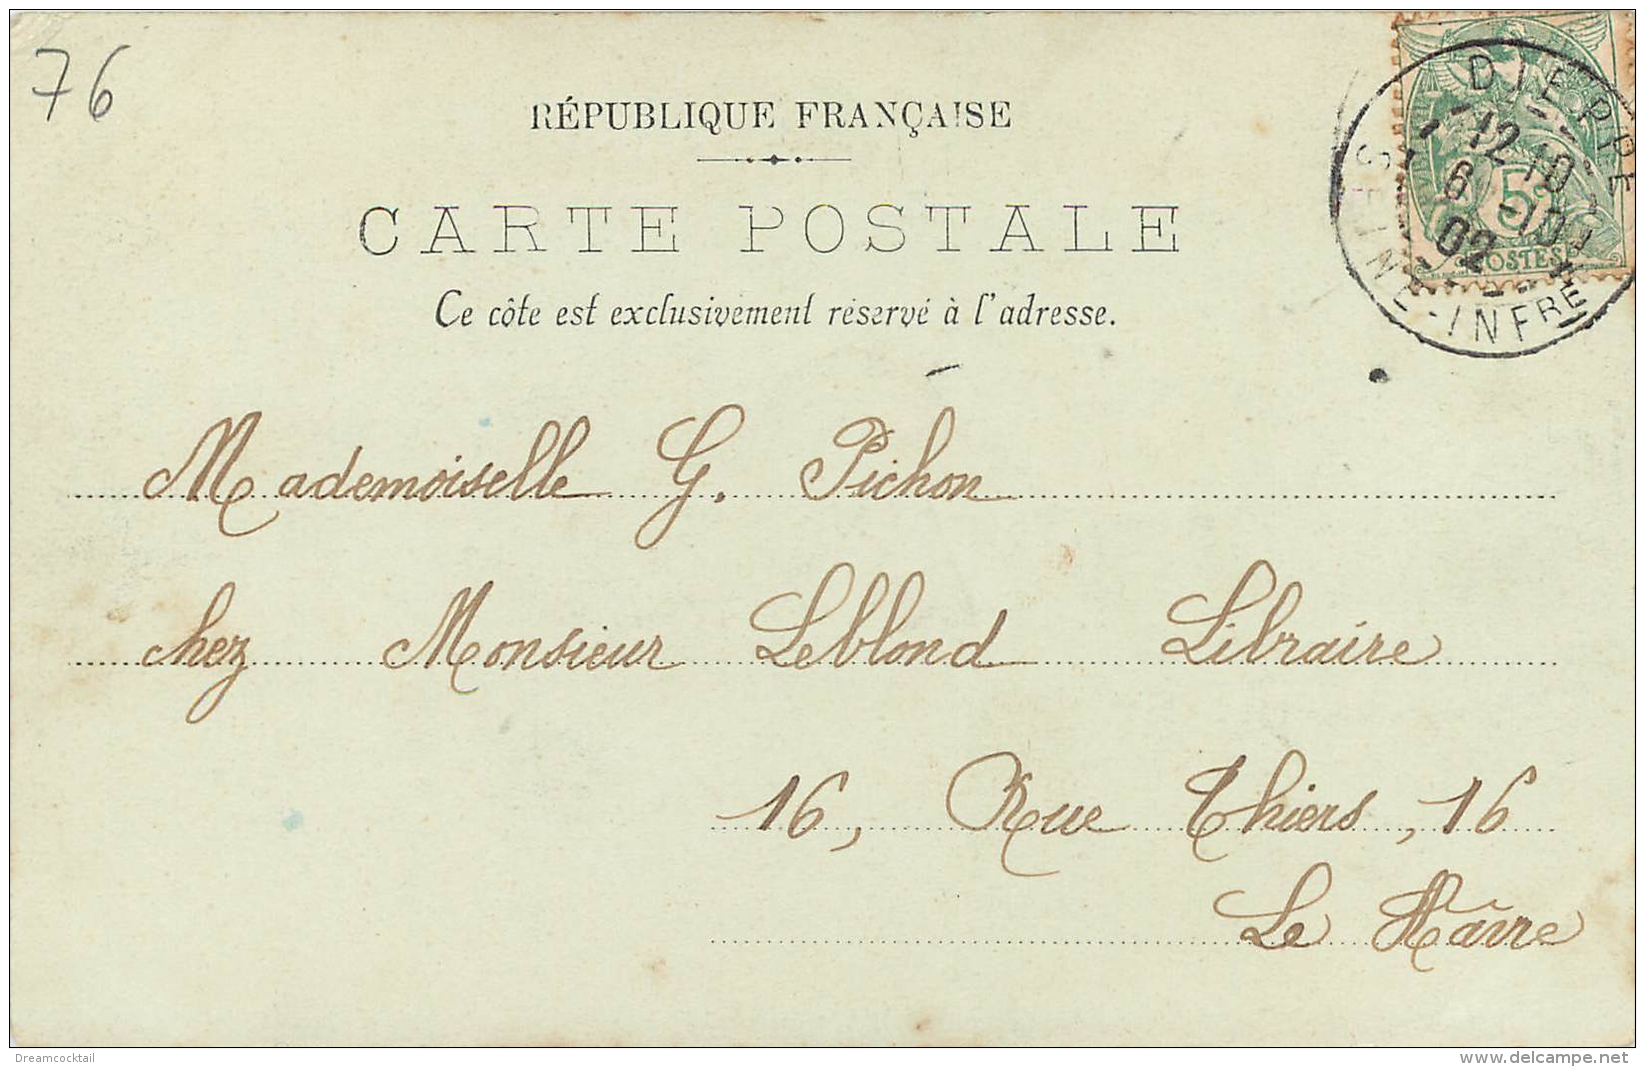 76
RÉPUBLIQUE FRANÇAISE
CARTE POSTALE
Ce côte est exclusivement réservé à l'adresse.
DIEPPE
12 10
6 -10
02
SEINE-INFRE
5c
POSTES
Mademoiselle G. Pichon
chez Monsieur Leblond Libraire
16, Rue Thiers, 16
Le Hâvre
Dreamcocktail
www.delcampe.net